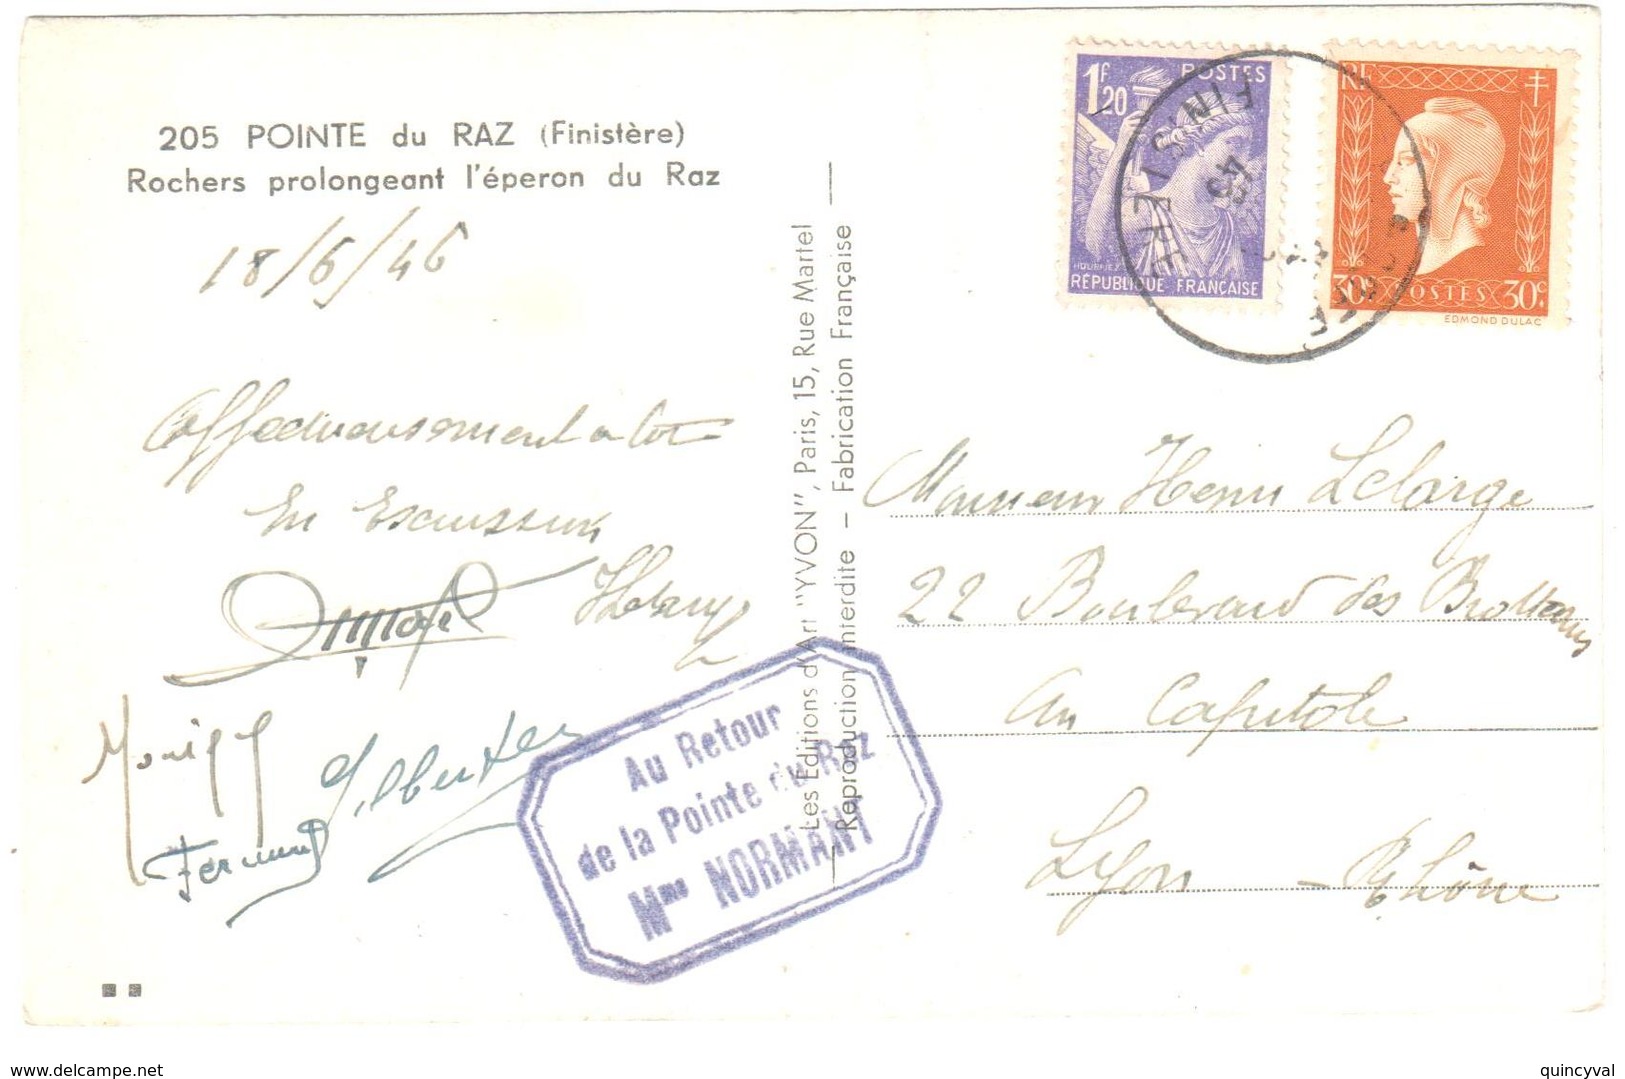 205 POINTE du RAZ (Finistère)
Rochers prolongeant l'éperon du Raz
18/6/46
Affectueusement a toi
En Excursion
Monique
Gilberte
Fernand
Au Retour
de la Pointe du Raz
Mme NORMANT
Les Editions d'Art "YVON", Paris, 15, Rue Martel
Reproduction interdite - Fabrication Française
1F20
POSTES
RÉPUBLIQUE FRANÇAISE
RF
30c POSTES 30c
EDMOND DULAC
FINISTERE
Monsieur Henri Lelarge
22 Boulevard des Brotteaux
Au Capitole
Lyon - Rhône
www.delcampe.net
quincyval